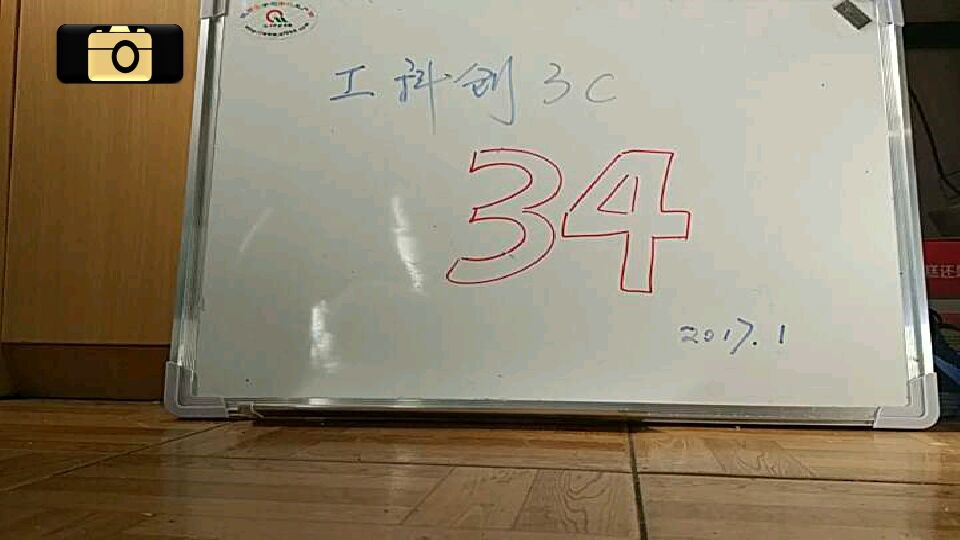 工科创3C
34
2017.1
庭还是